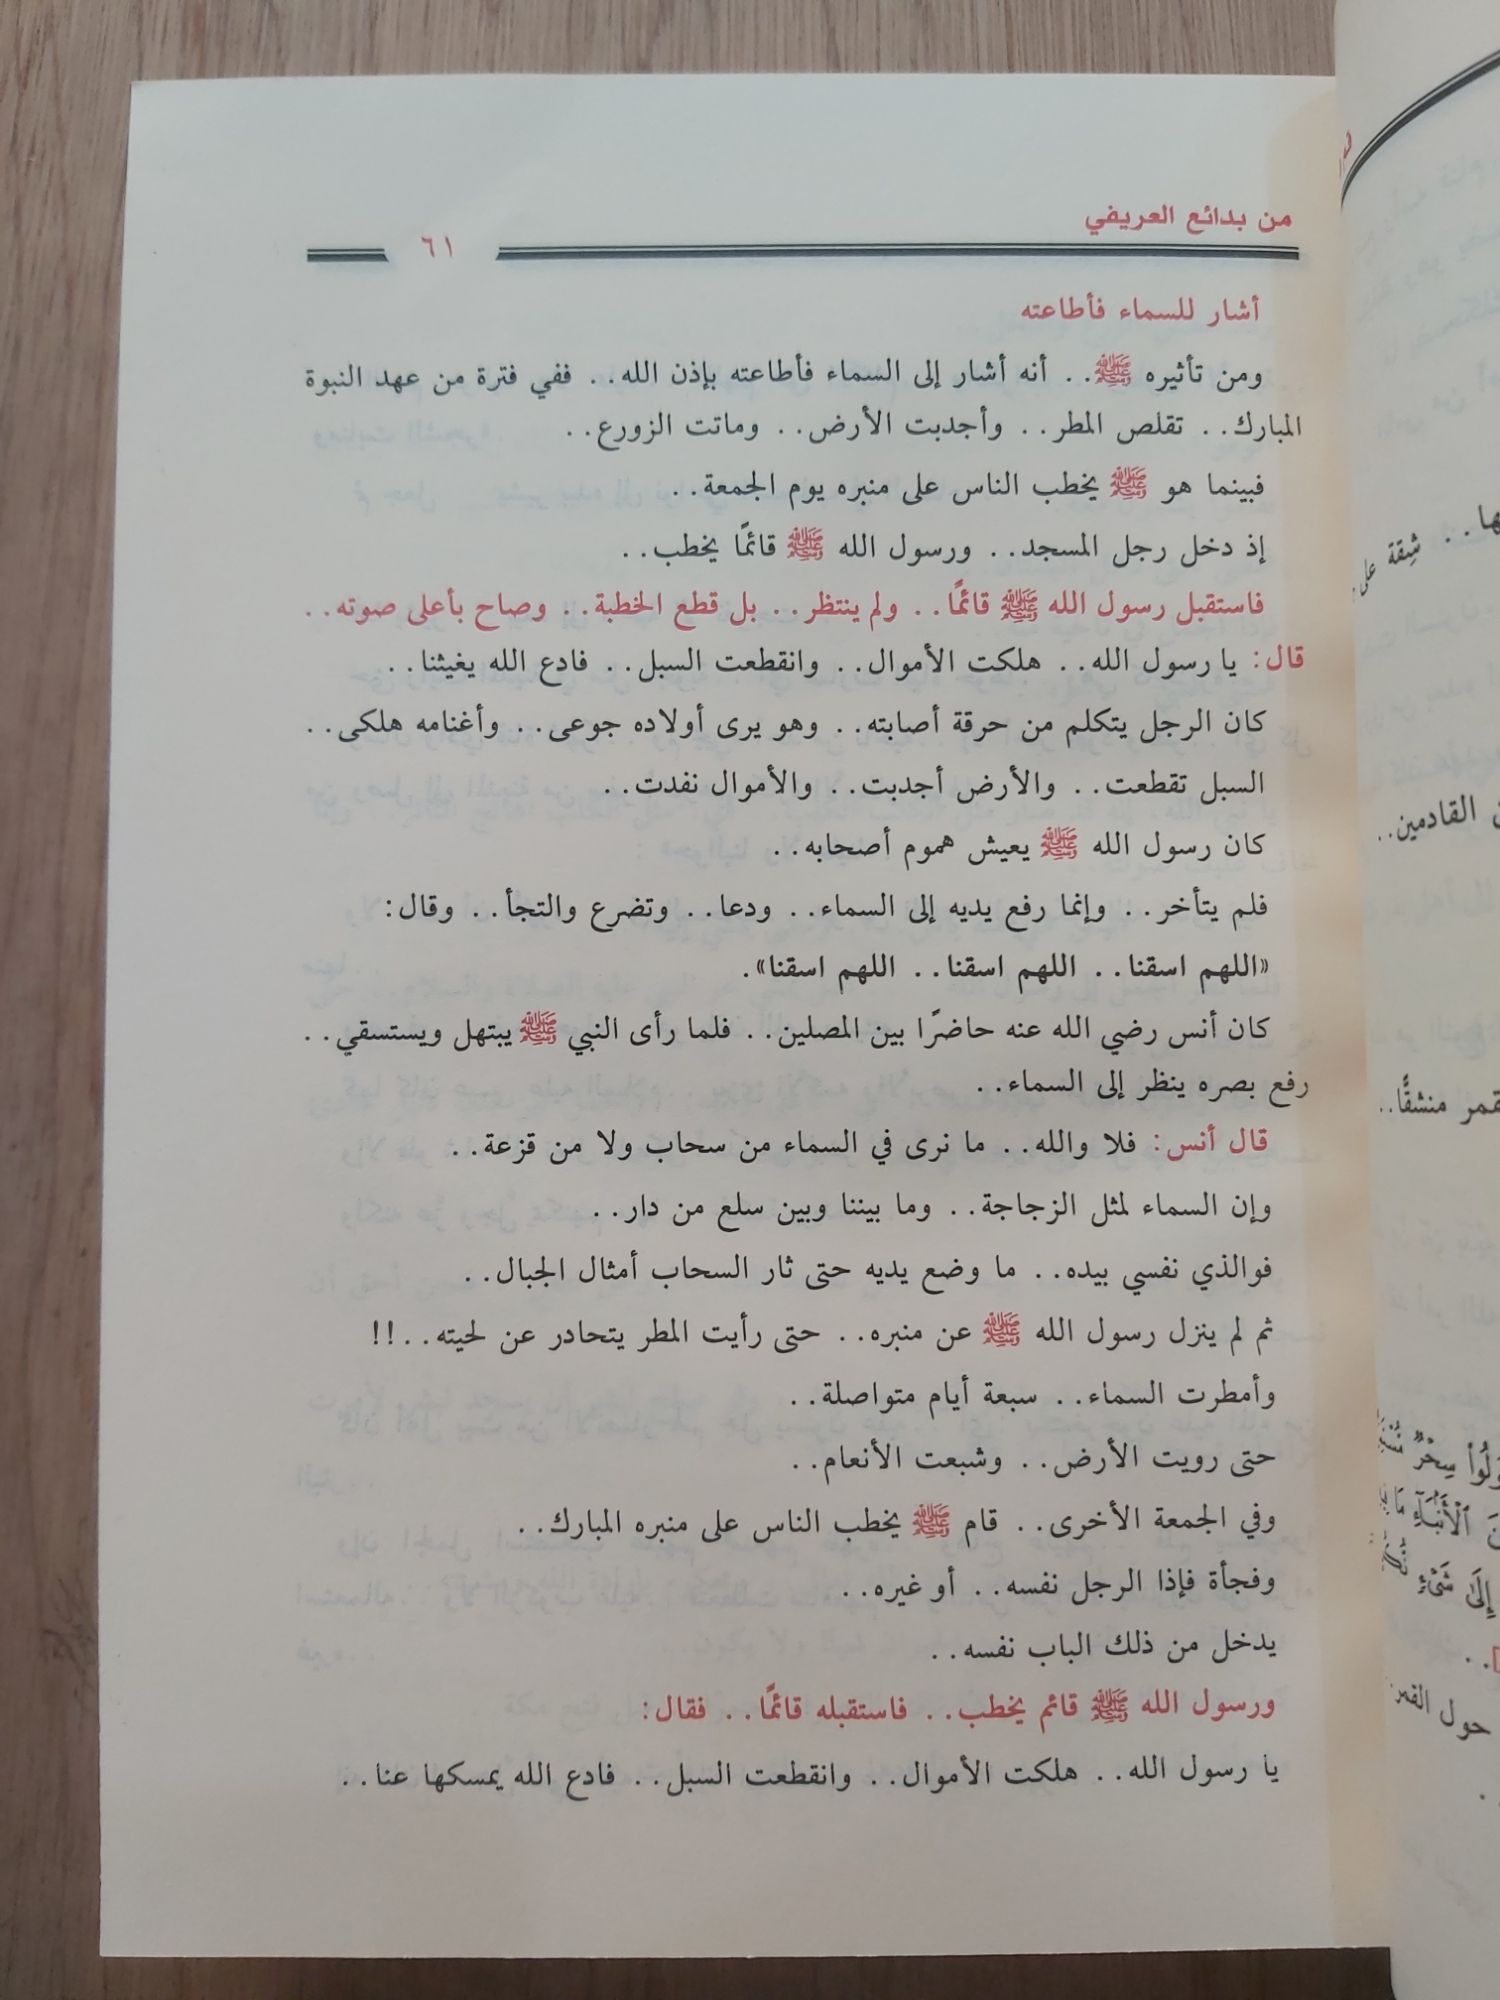 من بدائع العريفي
٦١
أشار للسماء فأطاعته
ومن تأثيره ﷺ.. أنه أشار إلى السماء فأطاعته بإذن الله.. ففي فترة من عهد النبوة
المبارك.. تقلص المطر.. وأجدبت الأرض.. وماتت الزورع..
فبينما هو ﷺ يخطب الناس على منبره يوم الجمعة..
إذ دخل رجل المسجد.. ورسول الله ﷺ قائمًا يخطب..
فاستقبل رسول الله ﷺ قائمًا.. ولم ينتظر.. بل قطع الخطبة.. وصاح بأعلى صوته..
قال: يا رسول الله.. هلكت الأموال.. وانقطعت السبل.. فادع الله يغيثنا..
كان الرجل يتكلم من حرقة أصابته.. وهو يرى أولاده جوعى.. وأغنامه هلكى..
السبل تقطعت.. والأرض أجدبت.. والأموال نفدت..
كان رسول الله ﷺ يعيش هموم أصحابه..
فلم يتأخر.. وإنما رفع يديه إلى السماء.. ودعا.. وتضرع والتجأ.. وقال:
«اللهم اسقنا.. اللهم اسقنا.. اللهم اسقنا».
كان أنس رضي الله عنه حاضرًا بين المصلين.. فلما رأى النبي ﷺ يبتهل ويستسقي..
رفع بصره ينظر إلى السماء..
قال أنس: فلا والله.. ما نرى في السماء من سحاب ولا من قزعة..
وإن السماء لمثل الزجاجة.. وما بيننا وبين سلع من دار..
فوالذي نفسي بيده.. ما وضع يديه حتى ثار السحاب أمثال الجبال..
ثم لم ينزل رسول الله ﷺ عن منبره.. حتى رأيت المطر يتحادر عن لحيته..!!
وأمطرت السماء.. سبعة أيام متواصلة..
حتى رويت الأرض.. وشبعت الأنعام..
وفي الجمعة الأخرى.. قام ﷺ يخطب الناس على منبره المبارك..
وفجأة فإذا الرجل نفسه.. أو غيره..
يدخل من ذلك الباب نفسه..
ورسول الله ﷺ قائم يخطب.. فاستقبله قائمًا.. فقال:
يا رسول الله.. هلكت الأموال.. وانقطعت السبل.. فادع الله يمسكها عنا..
شِقة على
القادمين..
منشقًّا..
سِحْرٌ
إِلَىٰ شَىْءٍ
حول